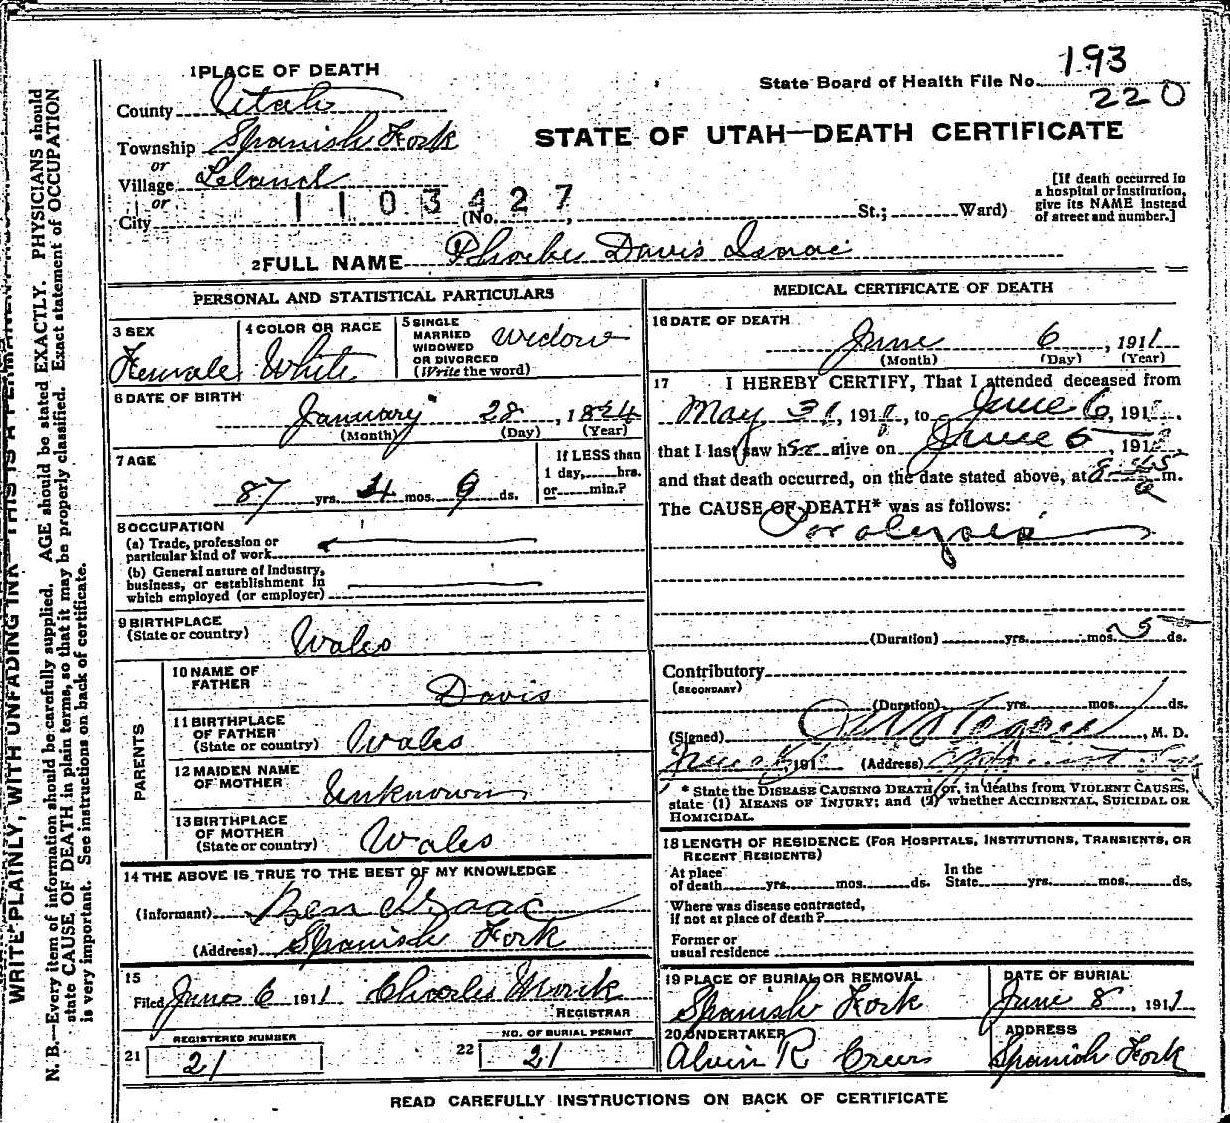 1 PLACE OF DEATH
State Board of Health File No. 193
220
County Utah
STATE OF UTAH—DEATH CERTIFICATE
Township Spanish Fork
or
Village Leland
or
1103427
City (No. , St.; Ward)
[If death occurred in a hospital or institution, give its NAME instead of street and number.]
2 FULL NAME Phoebe Davis Isaac
PERSONAL AND STATISTICAL PARTICULARS
3 SEX
Female
4 COLOR OR RACE
White
5 SINGLE
MARRIED
WIDOWED
OR DIVORCED
(Write the word)
Widow
6 DATE OF BIRTH
January 28, 1824
(Month) (Day) (Year)
7 AGE
87 yrs. 4 mos. 9 ds.
If LESS than
1 day, hrs.
or min.?
8 OCCUPATION
(a) Trade, profession or
particular kind of work
(b) General nature of Industry,
business, or establishment in
which employed (or employer)
9 BIRTHPLACE
(State or country)
Wales
PARENTS
10 NAME OF
FATHER
Davis
11 BIRTHPLACE
OF FATHER
(State or country)
Wales
12 MAIDEN NAME
OF MOTHER
Unknown
13 BIRTHPLACE
OF MOTHER
(State or country)
Wales
14 THE ABOVE IS TRUE TO THE BEST OF MY KNOWLEDGE
(Informant) Isaac
(Address) Spanish Fork
15
Filed June 6 1911 Charles Monk
REGISTRAR
REGISTERED NUMBER
21 21
NO. OF BURIAL PERMIT
22 21
MEDICAL CERTIFICATE OF DEATH
16 DATE OF DEATH
June 6, 1911
(Month) (Day) (Year)
17 I HEREBY CERTIFY, That I attended deceased from
May 31, 191 , to June 6, 191 ,
that I last saw her alive on June 5, 191
and that death occurred, on the date stated above, at 8-45 a m.
The CAUSE OF DEATH* was as follows:
Paralysis
(Duration) yrs. mos. 5 ds.
Contributory
(SECONDARY)
(Duration) yrs. mos. ds.
(Signed) , M. D.
June , 191 (Address)
* State the DISEASE CAUSING DEATH, or, in deaths from VIOLENT CAUSES,
state (1) MEANS OF INJURY; and (2) whether ACCIDENTAL, SUICIDAL OR
HOMICIDAL.
18 LENGTH OF RESIDENCE (FOR HOSPITALS, INSTITUTIONS, TRANSIENTS, OR
RECENT RESIDENTS)
At place
of death yrs. mos. ds.
In the
State yrs. mos. ds.
Where was disease contracted,
if not at place of death?
Former or
usual residence
19 PLACE OF BURIAL OR REMOVAL
Spanish Fork
DATE OF BURIAL
June 8, 1911
20 UNDERTAKER
Alvin R Creer
ADDRESS
Spanish Fork
READ CAREFULLY INSTRUCTIONS ON BACK OF CERTIFICATE
WRITE PLAINLY, WITH UNFADING INK—THIS IS A PERMANENT
N. B.—Every item of information should be carefully supplied. AGE should be stated EXACTLY. PHYSICIANS should
state CAUSE OF DEATH in plain terms, so that it may be properly classified. Exact statement of OCCUPATION
is very important. See instructions on back of certificate.